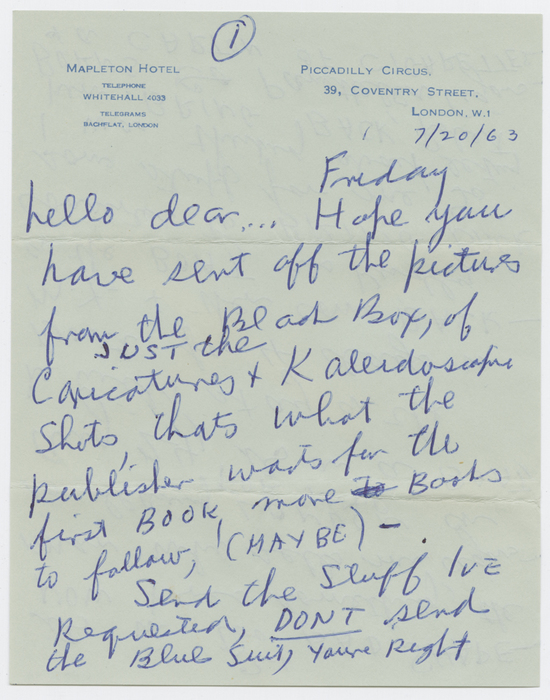 1
MAPLETON HOTEL
TELEPHONE
WHITEHALL 4033
TELEGRAMS
BACHFLAT, LONDON
PICCADILLY CIRCUS,
39, COVENTRY STREET,
LONDON, W.1
7/20/63
Friday
hello dear.... Hope you
have sent off the pictures
from the Black Box, of
JUST the
Caricatures + Kaleidoscope
Shots, thats what the
publisher wants for the
first BOOK, more to Books
to follow, (MAYBE) -.
Send the Stuff I've
Requested, DONT send
the Blue Suit, You're Right